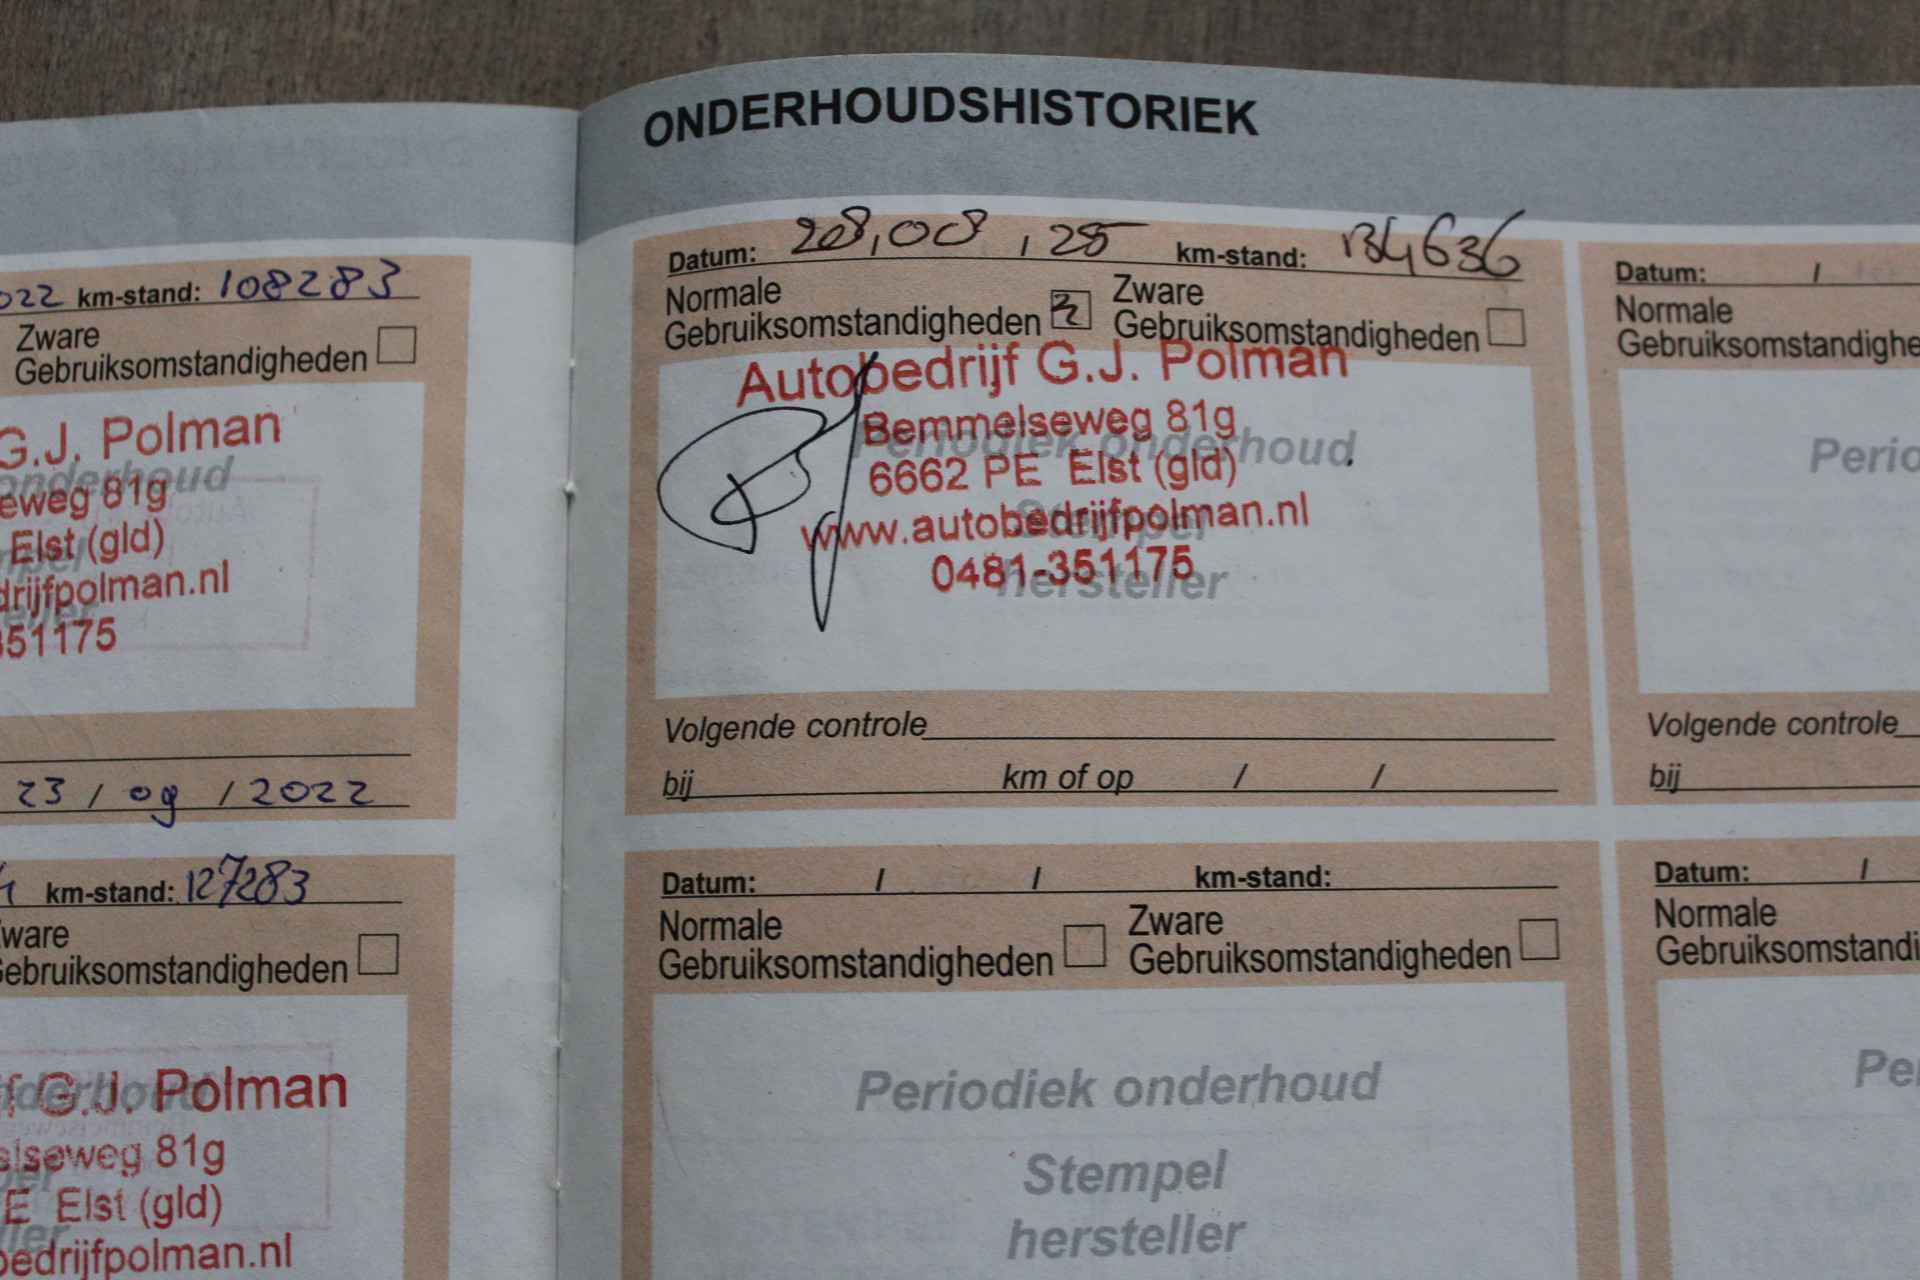 ONDERHOUDSHISTORIEK
022 km-stand: 108283
Zware
Gebruiksomstandigheden
G.J. Polman
onderhoud
eweg 81g
Elst (gld)
drijfpolman.nl
351175
23 / 09 / 2022
km-stand: 127283
Zware
Gebruiksomstandigheden
f G.J. Polman
onderhoud
elseweg 81g
E Elst (gld)
bedrijfpolman.nl
Datum: 28,08,25 km-stand: 134636
Normale
Gebruiksomstandigheden
Zware
Gebruiksomstandigheden
Autobedrijf G.J. Polman
Bemmelseweg 81g
Periodiek onderhoud
6662 PE Elst (gld)
Stempel
www.autobedrijfpolman.nl
0481-351175
hersteller
Volgende controle
bij km of op / /
Datum: / / km-stand:
Normale
Gebruiksomstandigheden
Zware
Gebruiksomstandigheden
Periodiek onderhoud
Stempel
hersteller
Datum: /
Normale
Gebruiksomstandighe
Perio
Volgende controle
bij
Datum: /
Normale
Gebruiksomstandi
Pe